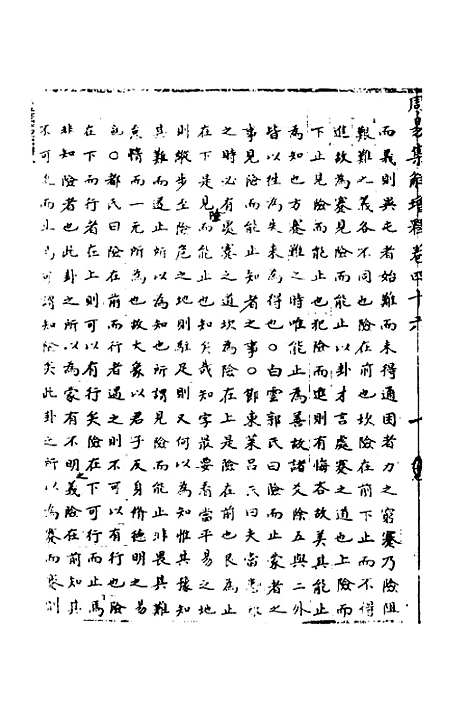 周易集解增釋卷四十六
而義則異屯者始難而未得通困者力之窮蹇乃險阻
艱難之義各不同也險在前也坎險在前下止而不得
進故為蹇見險而能止以卦才言處蹇之道也上險而
下止見險而能止也犯險而進則有悔吝故美其能止
為知也方蹇難之時唯能止為善故諸爻除五與二外
皆以往為失來為得也○白雲郭氏曰險而止蒙者之
事見險而能止知者之事○鄭東萊呂氏曰夫當蹇
之時必有處蹇之道坎為險在上是險在前也艮為止
在下是見險而能止也知矣哉知字最要看當平易之地
則縱步至險危之地則駐足則又何以為知惟其豫知
其難而遽止所以為知也所謂見險而能止非畏其難
負情而一元所為也故大象以君子反身脩德明之易
○都氏曰險在前而行者遇之則不可以有行也險
在下而行者在上則可以有行矣險在下可行而止焉
非知險者也此卦之所以為蒙有不明之義險在前知其
不可而止焉可謂知險矣此卦之所以為蹇而蒙則